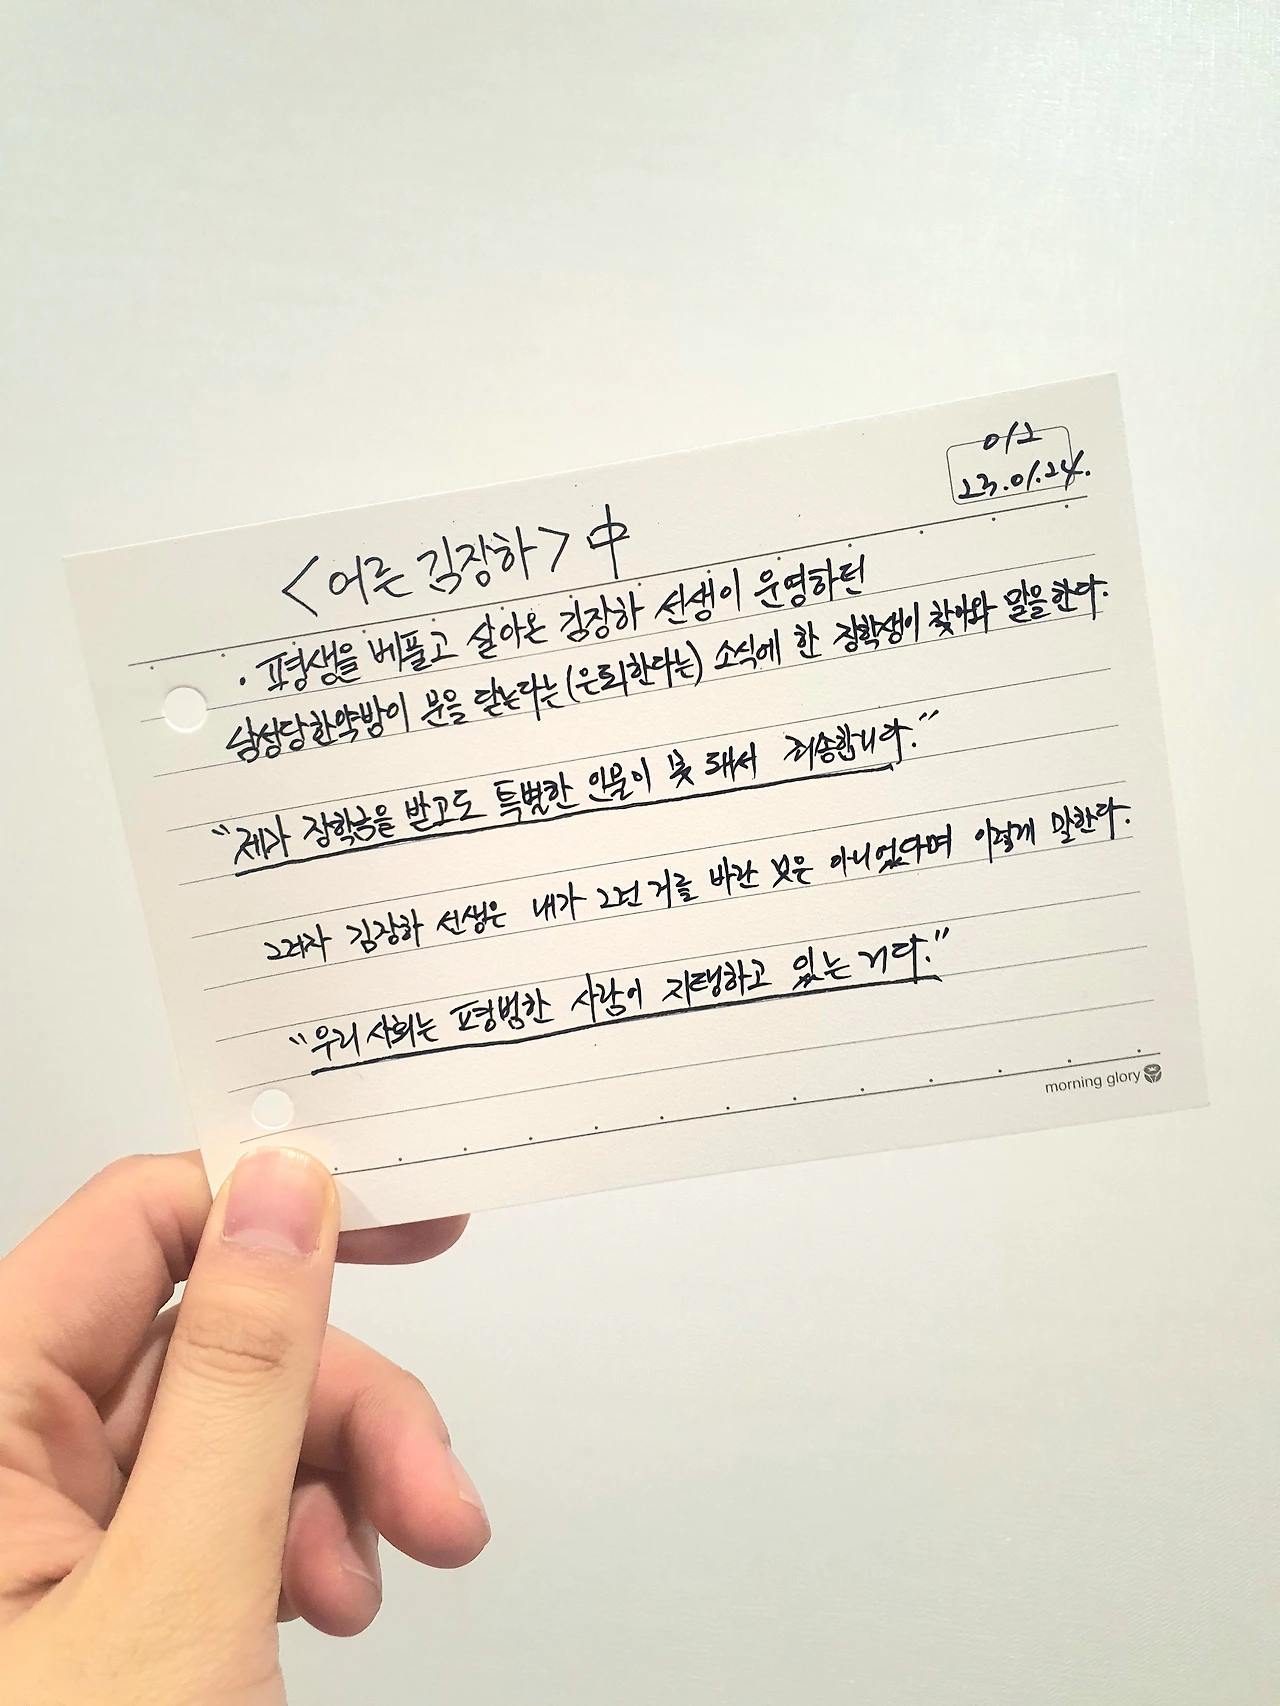 012
23.01.24.
<어른 김장하> 中
· 평생을 베풀고 살아온 김장하 선생이 운영하던
남성당한약방이 문을 닫는다는(은퇴한다는) 소식에 한 장학생이 찾아와 말을한다.
"제가 장학금을 받고도 특별한 인물이 못 돼서 죄송합니다."
그러자 김장하 선생은 내가 그런 거를 바란 것은 아니었다며 이렇게 말한다.
"우리 사회는 평범한 사람이 지탱하고 있는 거다."
morning glory